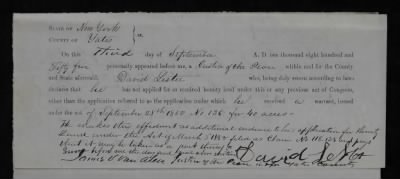 STATE OF New York
COUNTY OF Yates } ss.
On this Third day of September A. D. one thousand eight hundred and
Fifty five personally appeared before me, a Justice of the Peace within and for the County
and State aforesaid, David Lester who, being duly sworn according to law,
declares that he has not applied for or received bounty land under this or any previous act of Congress,
other than the application referred to as the application under which he received a warrant, issued
under the act of September 28th 1850 No 126 for 40 acres
He makes this affidavit as additional evidence to his application for Bounty
Land under the Act of March 3 1855 filed as Claim No
that it may be taken as a part thereof
David Lester
James Van Justice of the Peace